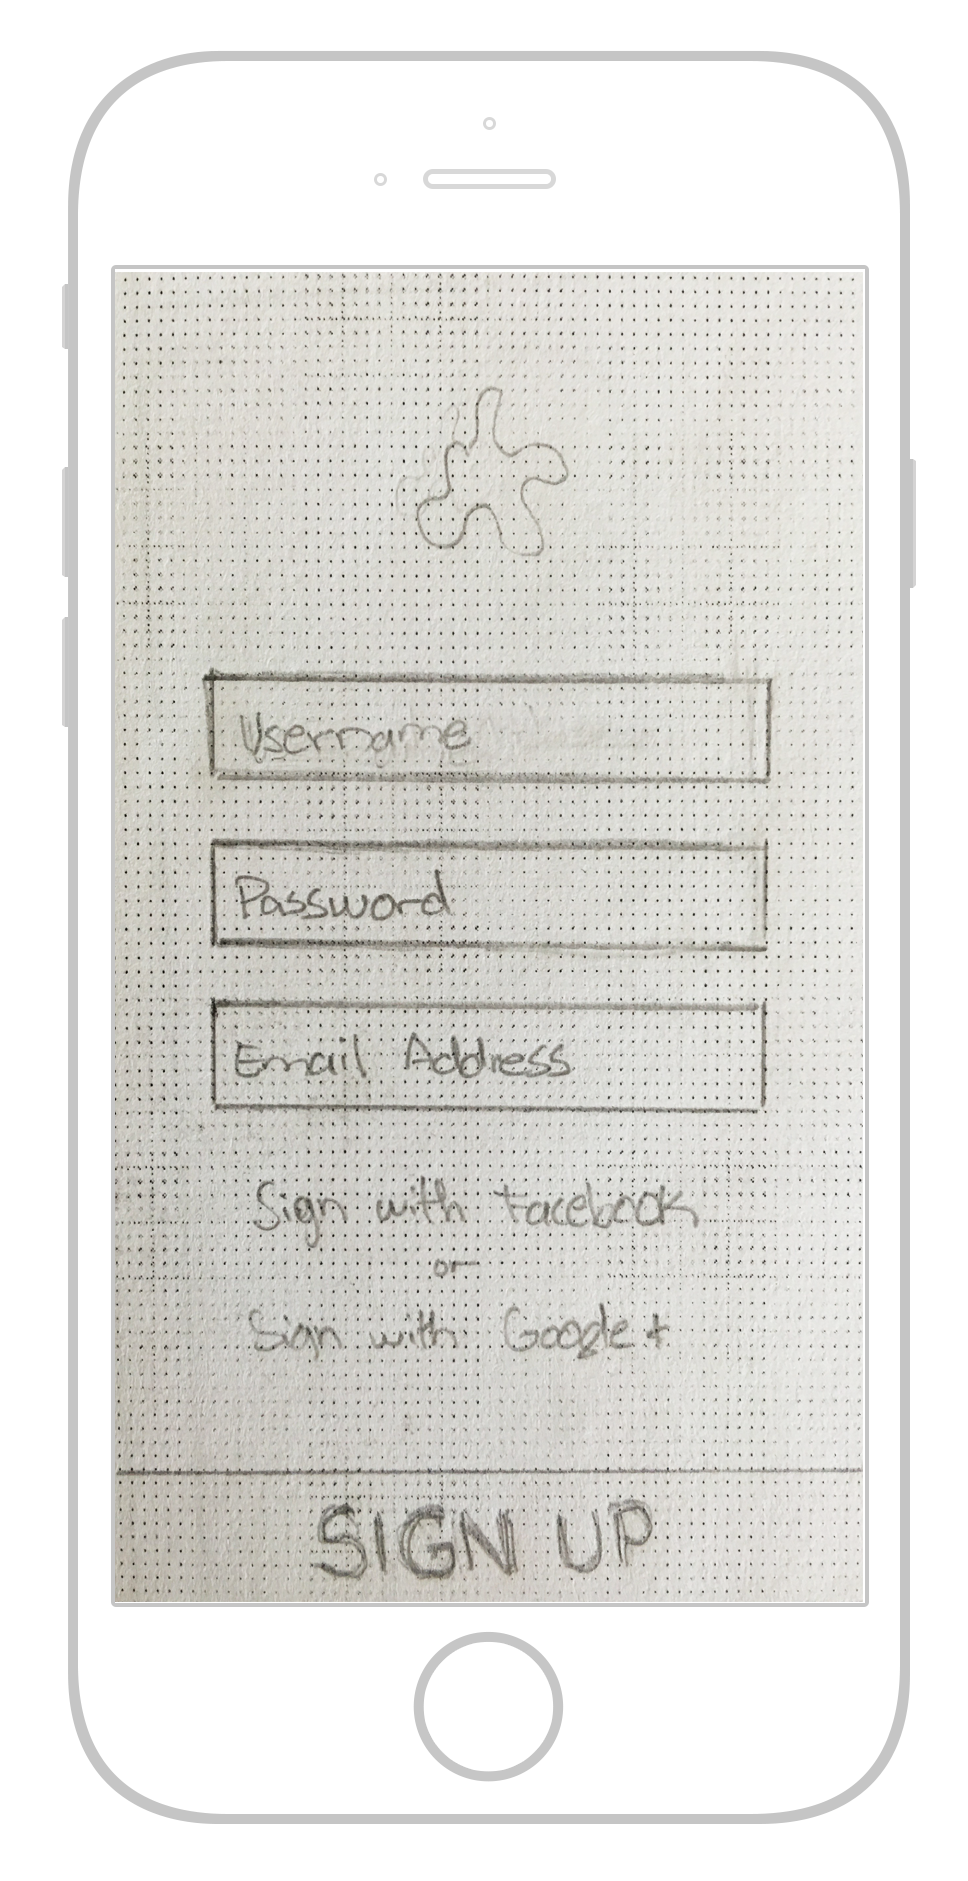 Username
Password
Email Address
Sign with facebook
or
Sign with Google+
SIGN UP